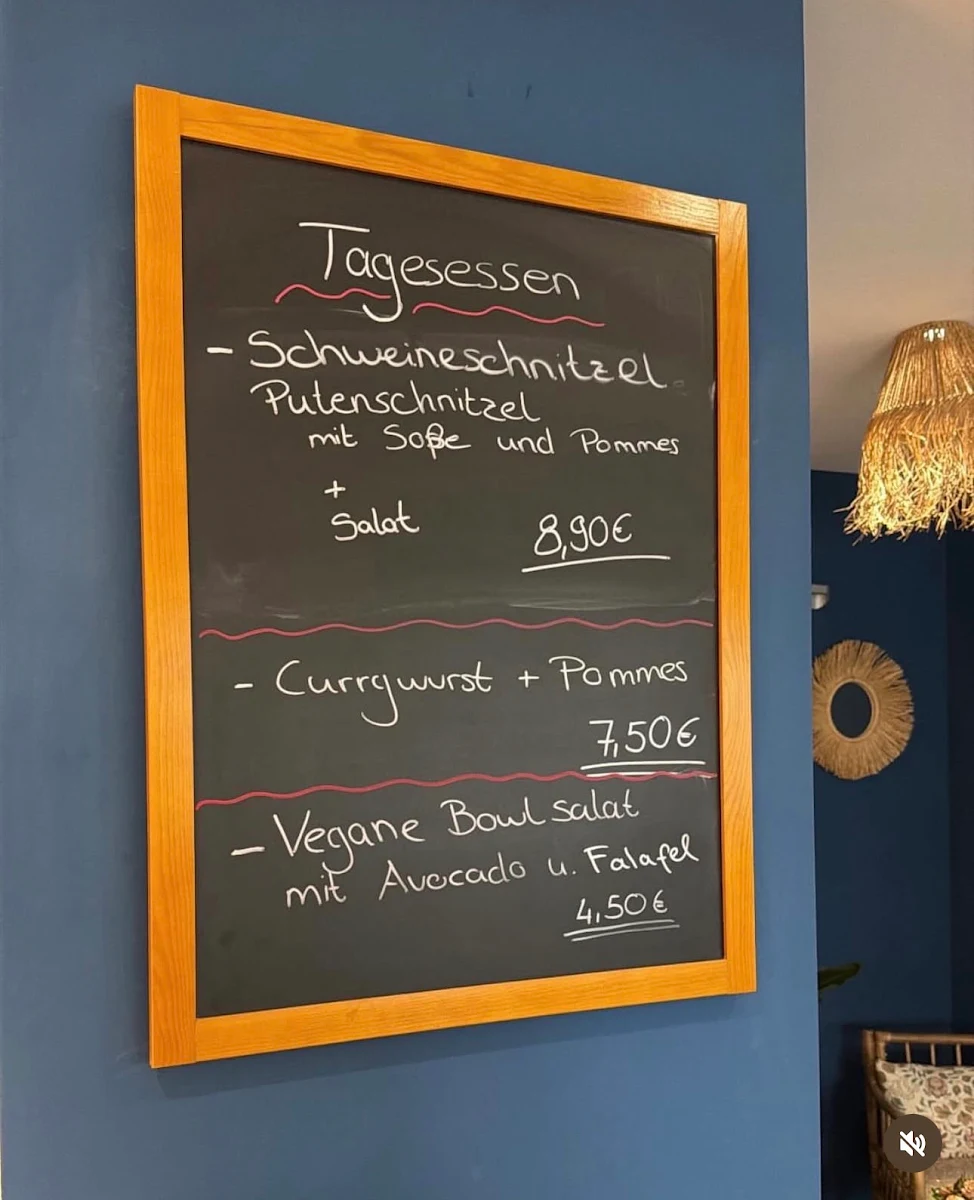 Tagesessen
- Schweineschnitzel
Putenschnitzel
mit Soße und Pommes
+
Salat 8,90€
- Currywurst + Pommes
7,50€
- Vegane Bowl salat
mit Avocado u. Falafel
4,50€